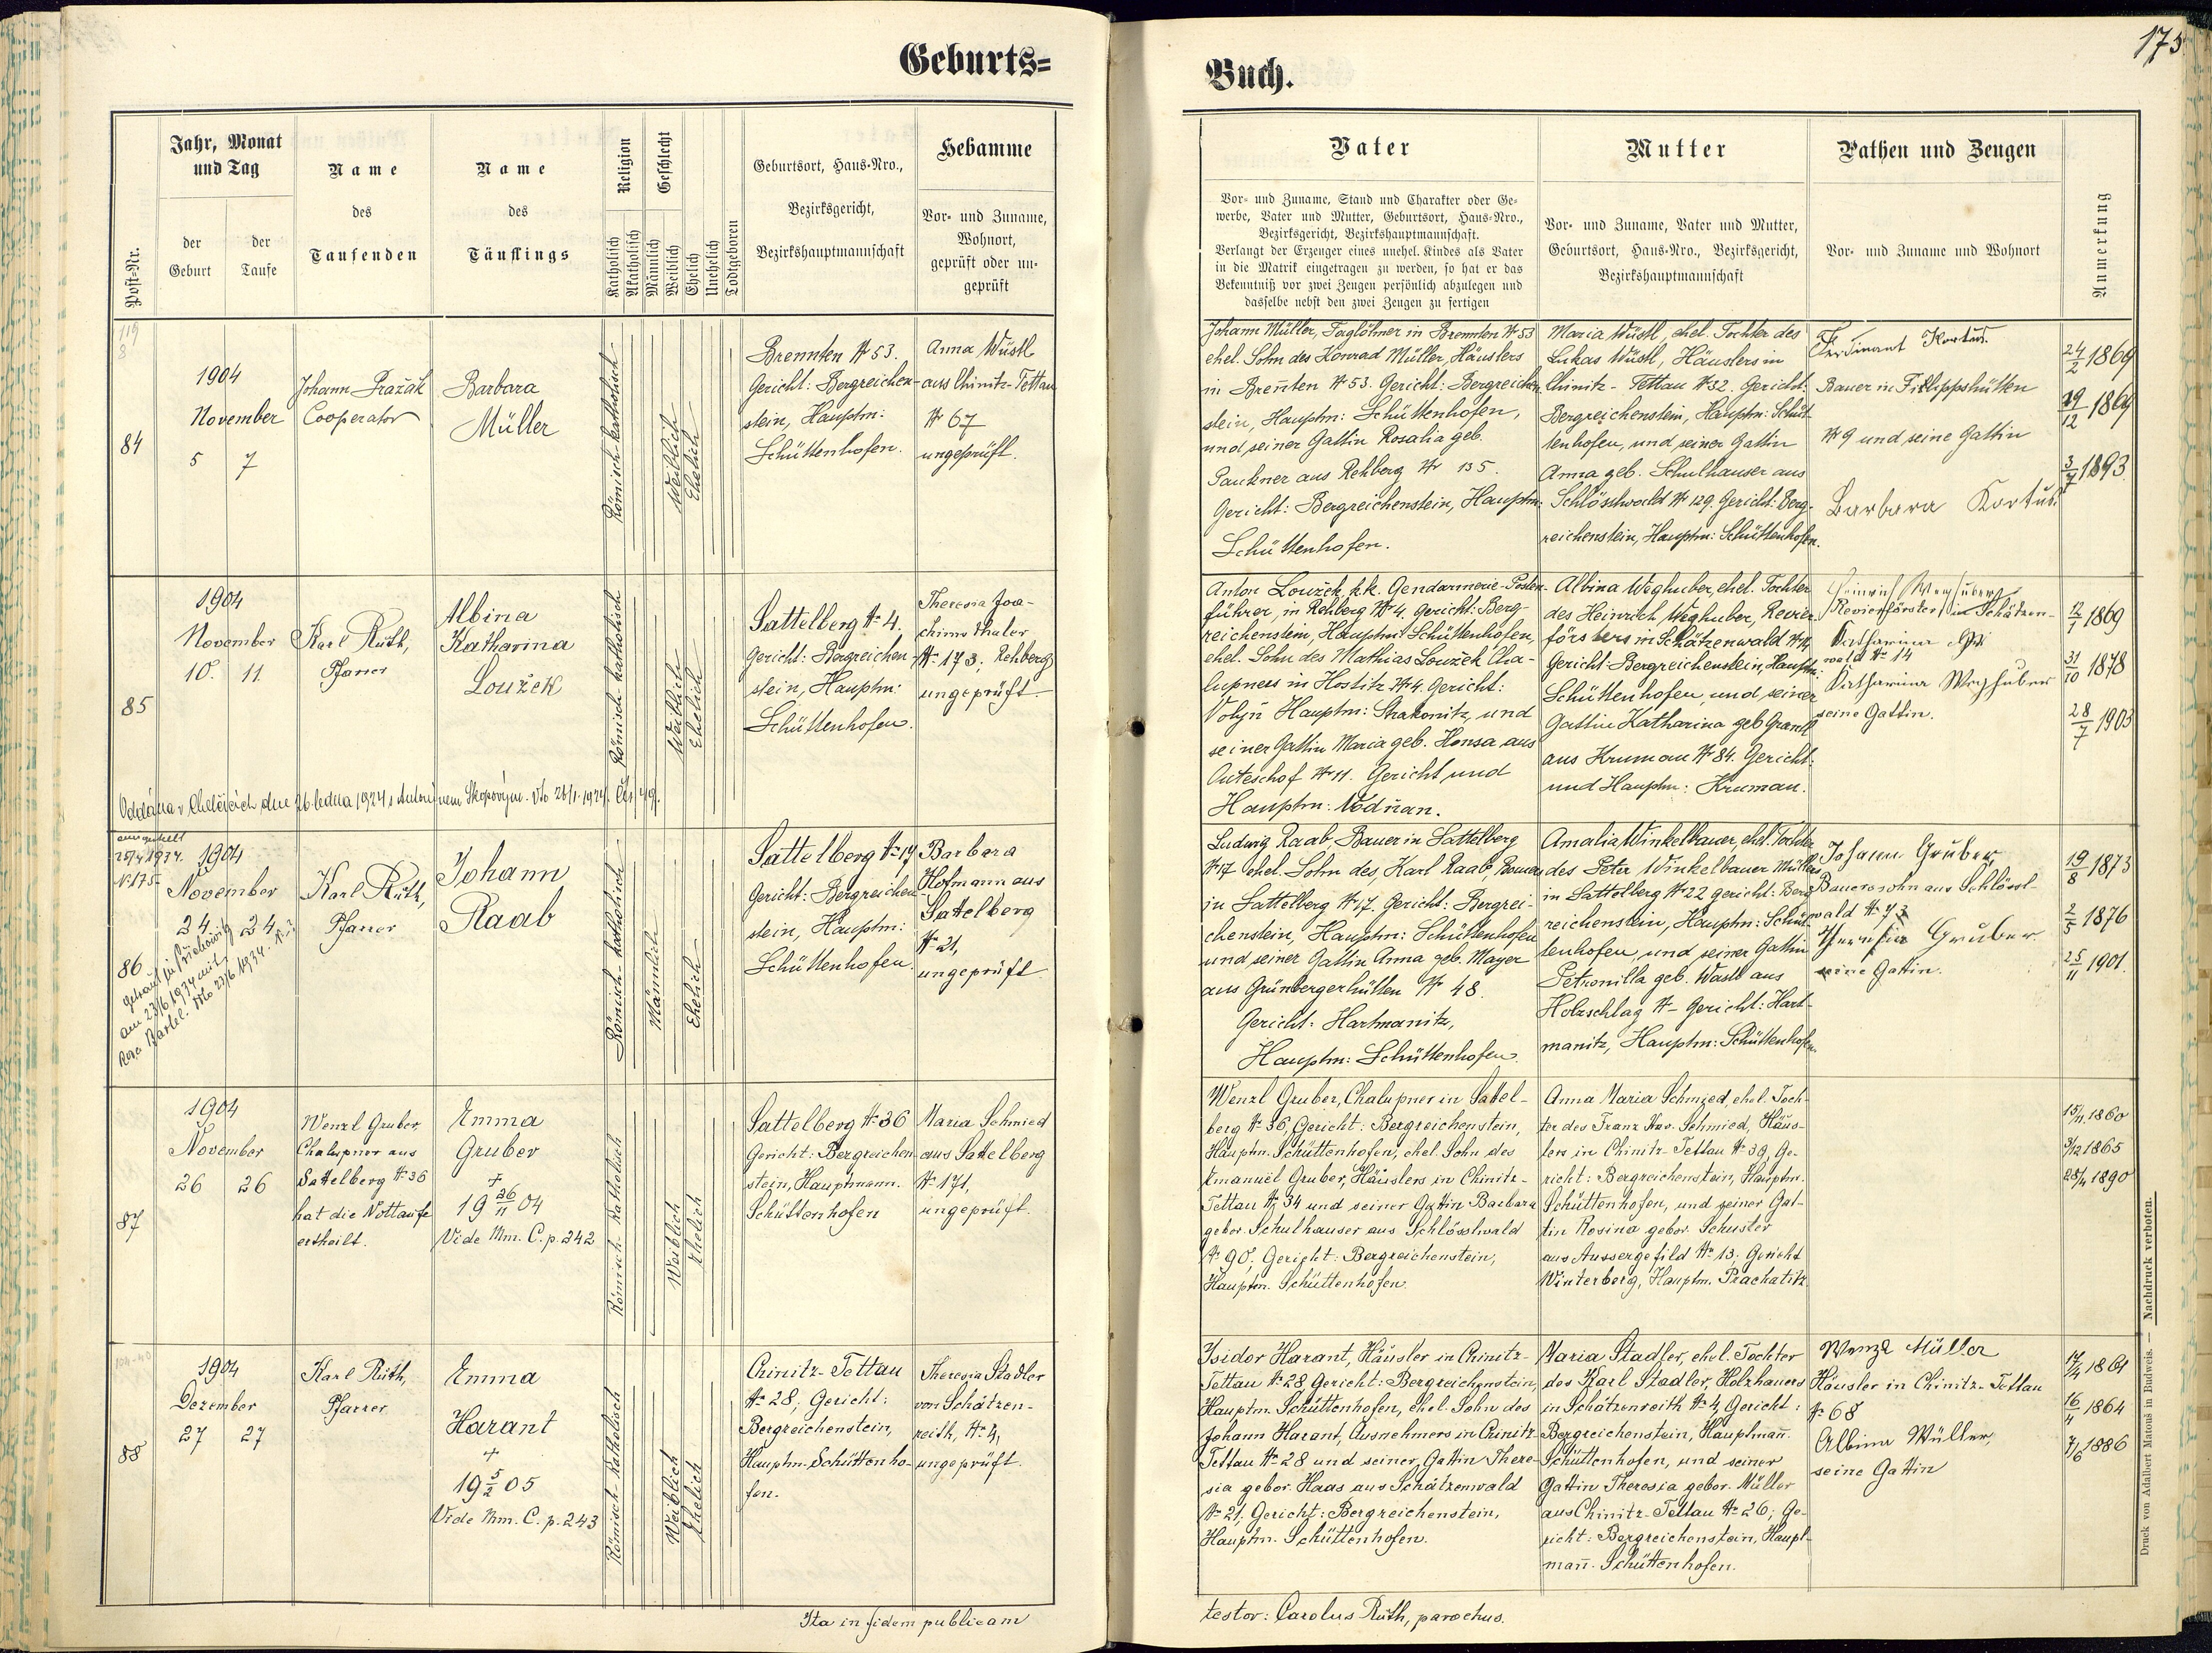 Geburts=
Buch.
175
Post-Nr.
Jahr, Monat
und Tag
der
Geburt
der
Taufe
Name
des
Taufenden
Name
des
Täuflings
Religion
Katholisch
Akatholisch
Geschlecht
Männlich
Weiblich
Ehelich
Unehelich
Todtgeboren
Geburtsort, Haus-Nro.,
Bezirksgericht,
Bezirkshauptmannschaft
Hebamme
Vor- und Zuname,
Wohnort,
geprüft oder un-
geprüft
Vater
Vor- und Zuname, Stand und Charakter oder Ge-
werbe, Vater und Mutter, Geburtsort, Haus-Nro.,
Bezirksgericht, Bezirkshauptmannschaft.
Verlangt der Erzeuger eines unehel. Kindes als Vater
in die Matrik eingetragen zu werden, so hat er das
Bekenntniß vor zwei Zeugen persönlich abzulegen und
dasselbe nebst den zwei Zeugen zu fertigen
Mutter
Vor- und Zuname, Vater und Mutter,
Geburtsort, Haus-Nro., Bezirksgericht,
Bezirkshauptmannschaft
Pathen und Zeugen
Vor- und Zuname und Wohnort
Anmerkung
84
1904
November
5 7
Johann Pražák
Cooperator
Barbara
Müller
Römisch-katholisch
Weiblich
Ehelich
Brennten № 53.
Gericht: Bergreichen-
stein, Hauptm:
Schüttenhofen.
Anna Wüstl
aus Chinitz-Tettau
№ 67
ungeprüft.
Johann Müller, Taglöhner in Brennten № 53
ehel. Sohn des Konrad Müller, Häuslers
in Breñten № 53. Gericht: Bergreichen-
stein, Hauptm: Schüttenhofen,
und seiner Gattin Rosalia geb.
Pauckner aus Rehberg № 135.
Gericht: Bergreichenstein, Hauptm:
Schüttenhofen.
Maria Wüstl, ehel. Tochter des
Lukas Wüstl, Häuslers in
Chinitz-Tettau № 32. Gericht:
Bergreichenstein, Hauptm: Schüt-
tenhofen, und seiner Gattin
Anna geb. Schulhauser aus
Schlösslwald № 129. Gericht: Berg-
reichenstein, Hauptm: Schüttenhofen.
Ferdinant Kortus.
Bauer in Filippshütten
№ 9 und seine Gattin
Barbara Kortus.
24/2 1869
19/12 1869
3/7 1893
85
1904
November
10. 11.
Karl Rüth,
Pfarrer
Albina
Katharina
Loužek
Römisch-katholisch
Weiblich
Ehelich
Sattelberg № 4.
Gericht: Bergreichen-
stein, Hauptm:
Schüttenhofen.
Theresia Joa-
chimsthaler
№ 173; Rehberg
ungeprüft.
Anton Loužek, k.k. Gendarmerie-Posten-
führer, in Rehberg № 4. Gericht: Berg-
reichenstein, Hauptm: Schüttenhofen,
ehel. Sohn des Mathias Loužek, Cha-
lupners in Hostitz № 4. Gericht:
Volyň Hauptm: Strakonitz, und
seiner Gattin Maria geb. Honsa aus
Outeschof № 11. Gericht und
Hauptm: Vodňan.
Albina Weghuber, ehel. Tochter
des Heinrich Weghuber, Revier-
försters in Schätzenwald № 14
Gericht: Bergreichenstein, Hauptm:
Schüttenhofen, und seiner
Gattin Katharina geb. Grantl
aus Krumau № 84. Gericht:
und Hauptm: Krumau.
Heinrich Weghuber
Revierförster in Schätzen-
wald № 14
Katharina Weghuber
seine Gattin.
12/1 1869
31/10 1878
28/7 1903
Oddána v Chelčicích dne 26. ledna 1924 s Antonínem Skopovým. Vto 28/1. 1924. Čís. 49.
86
ausgestellt
25/4 1934.
N. 175.
1904
November
24. 24.
am 23/6 1934 mit
Karl Rüth,
Pfarrer
Johann
Raab
Römisch-katholisch
Männlich
Ehelich
Sattelberg № 17
Gericht: Bergreichen-
stein, Hauptm:
Schüttenhofen.
Barbara
Hofmann aus
Sattelberg
№ 21,
ungeprüft
Ludwig Raab, Bauer in Sattelberg
№ 17 ehel. Sohn des Karl Raab, Bauers
in Sattelberg № 17. Gericht: Bergrei-
chenstein, Hauptm: Schüttenhofen
und seiner Gattin Anna geb. Mayer
aus Grünbergerhütten № 48.
Gericht: Hartmanitz,
Hauptm: Schüttenhofen.
Amalia Winkelbauer, ehel. Tochter
des Peter Winkelbauer Müllers
in Sattelberg № 22 Gericht: Berg-
reichenstein, Hauptm: Schüt-
tenhofen, und seiner Gattin
Petronilla geb. Wastl aus
Holzschlag №- Gericht: Hart-
manitz, Hauptm: Schüttenhofen
Johann Gruber,
Bauerssohn aus Schlössl-
wald № 73
Theresia Gruber
seine Gattin.
19/8 1873
2/5 1876
25/11 1901.
87
1904
November
26 26
Wenzl Gruber,
Chalupner aus
Sattelberg № 36
hat die Nottaufe
ertheilt.
Emma
Gruber
+
19 26/11 04
Vide Mm. C. p. 242
Römisch-katholisch
Weiblich
Ehelich
Sattelberg № 36
Gericht: Bergreichen-
stein, Hauptmann.
Schüttenhofen
Maria Schmied
aus Sattelberg
№ 171,
ungeprüft.
Wenzl Gruber, Chalupner in Sattel-
berg № 36, Gericht: Bergreichenstein,
Hauptm. Schüttenhofen, ehel. Sohn des
Emanuel Gruber, Häuslers in Chinitz-
Tettau № 34 und seiner Gattin Barbara
gebor. Schulhauser aus Schlösslwald
№ 90. Gericht: Bergreichenstein,
Hauptm. Schüttenhofen.
Anna Maria Schmied, ehel. Toch-
ter des Franz Xav. Schmied, Häus-
lers in Chinitz-Tettau № 39, Ge-
richt: Bergreichenstein, Hauptm.
Schüttenhofen, und seiner Gat-
tin Rosina gebor. Schuster
aus Aussergefild № 13. Gericht
Winterberg, Hauptm. Prachatitz.
15/11 1860
9/12 1865
25/11 1890
88
1904
Dezember
27 27
Karl Rüth,
Pfarrer
Emma
Harant
+
19 5/2 05
Vide Mm. C. p. 243
Römisch-katholisch
Weiblich
Ehelich
Chinitz-Tettau
№ 28, Gericht:
Bergreichenstein,
Hauptm. Schüttenho-
fen.
Theresia Stadler
von Schätzen-
reith, № 4,
ungeprüft.
Isidor Harant, Häusler in Chinitz-
Tettau № 28 Gericht: Bergreichenstein,
Hauptm. Schüttenhofen, ehel. Sohn des
Johann Harant, Ausnehmers in Chinitz-
Tettau № 28 und seiner Gattin There-
sia gebor. Haas aus Schätzenwald
№ 21, Gericht: Bergreichenstein,
Hauptm. Schüttenhofen.
Maria Stadler, ehel. Tochter
des Karl Stadler, Holzhauers
in Schätzenreith № 4, Gericht:
Bergreichenstein, Hauptmañ.
Schüttenhofen, und seiner
Gattin Theresia gebor. Müller
aus Chinitz-Tettau № 26; Ge-
richt: Bergreichenstein, Haupt-
mañ. Schüttenhofen.
Wenzl Müller
Häusler in Chinitz-Tettau
№ 68
Albina Müller,
seine Gattin
17/4 1861
16/4 1864
7/6 1886
Ita in fidem publicam
testor: Carolus Rüth, parochus.
Druck von Adalbert Matouš in Budweis. — Nachdruck verboten.